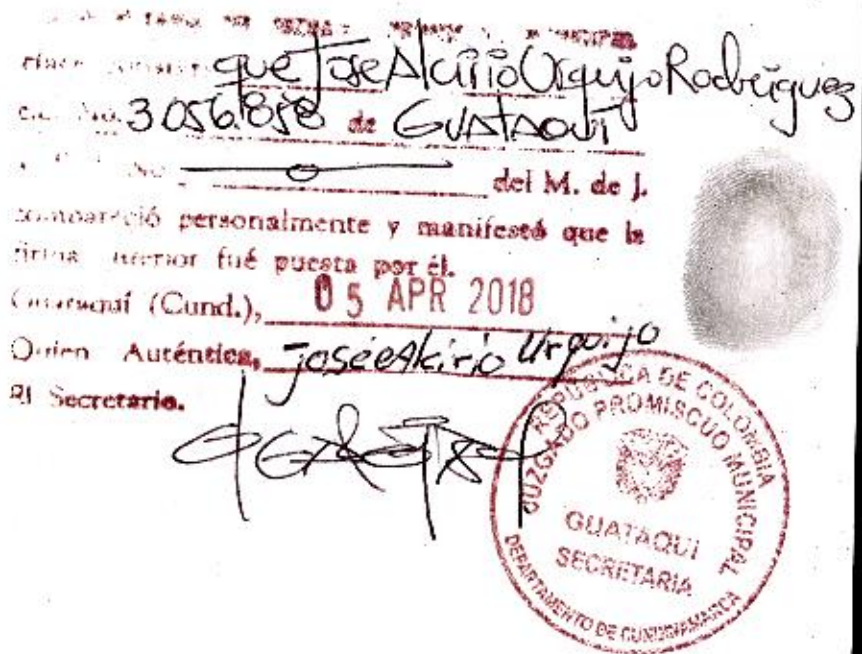 que Jose Alcirio Urquijo Rodriguez
No. 3056.858 de GUATAQUI
del M. de J.
compareció personalmente y manifestó que la
firma anterior fué puesta por él.
Guataquí (Cund.), 05 APR 2018
Quien Auténtica, José Alcirio Urquijo
El Secretario.
REPUBLICA DE COLOMBIA
JUZGADO PROMISCUO MUNICIPAL
GUATAQUI
SECRETARIA
DEPARTAMENTO DE CUNDINAMARCA